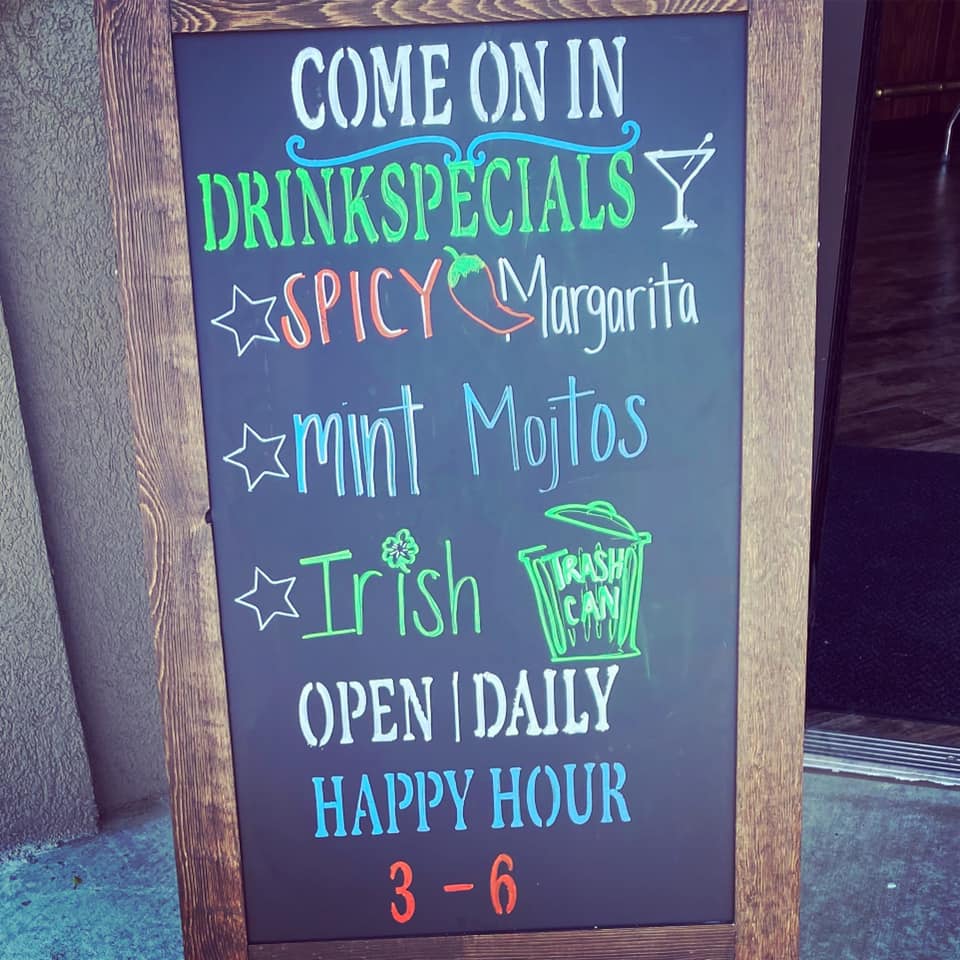 COME ON IN
DRINKSPECIALS
SPICY Margarita
mint Mojtos
Irish TRASH CAN
OPEN | DAILY
HAPPY HOUR
3 - 6